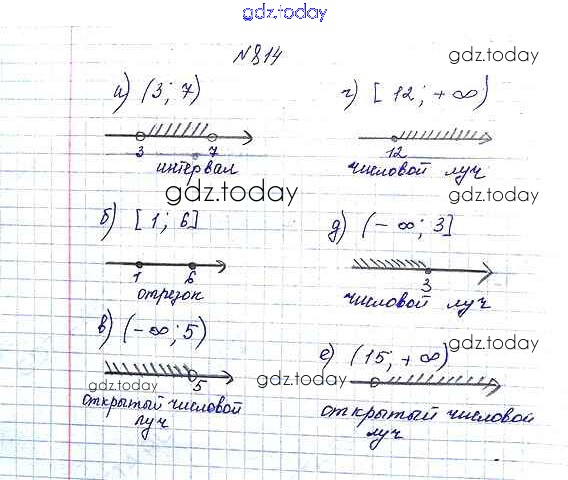 gdz.today
№814
gdz.today
а) (3; 7)
3 7
интервал
г) [12; +∞)
12
числовой луч
gdz.today
gdz.today
б) [1; 6]
1 6
отрезок
д) (-∞; 3]
3
числовой луч
gdz.today
в) (-∞; 5)
5
gdz.today
открытый числовой
луч
е) (15; +∞)
gdz.today
gdz.today
открытый числовой
луч